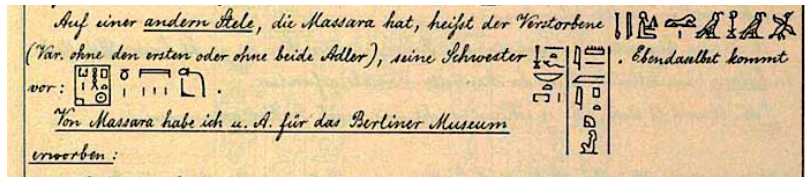 Auf einer andern Stele, die Massara hat, heißt der Verstorbene
(Var. ohne den ersten oder ohne beide Adler), seine Schwester . Ebendaselbst kommt
vor: .
Von Massara habe ich u. A. für das Berliner Museum
erworben: